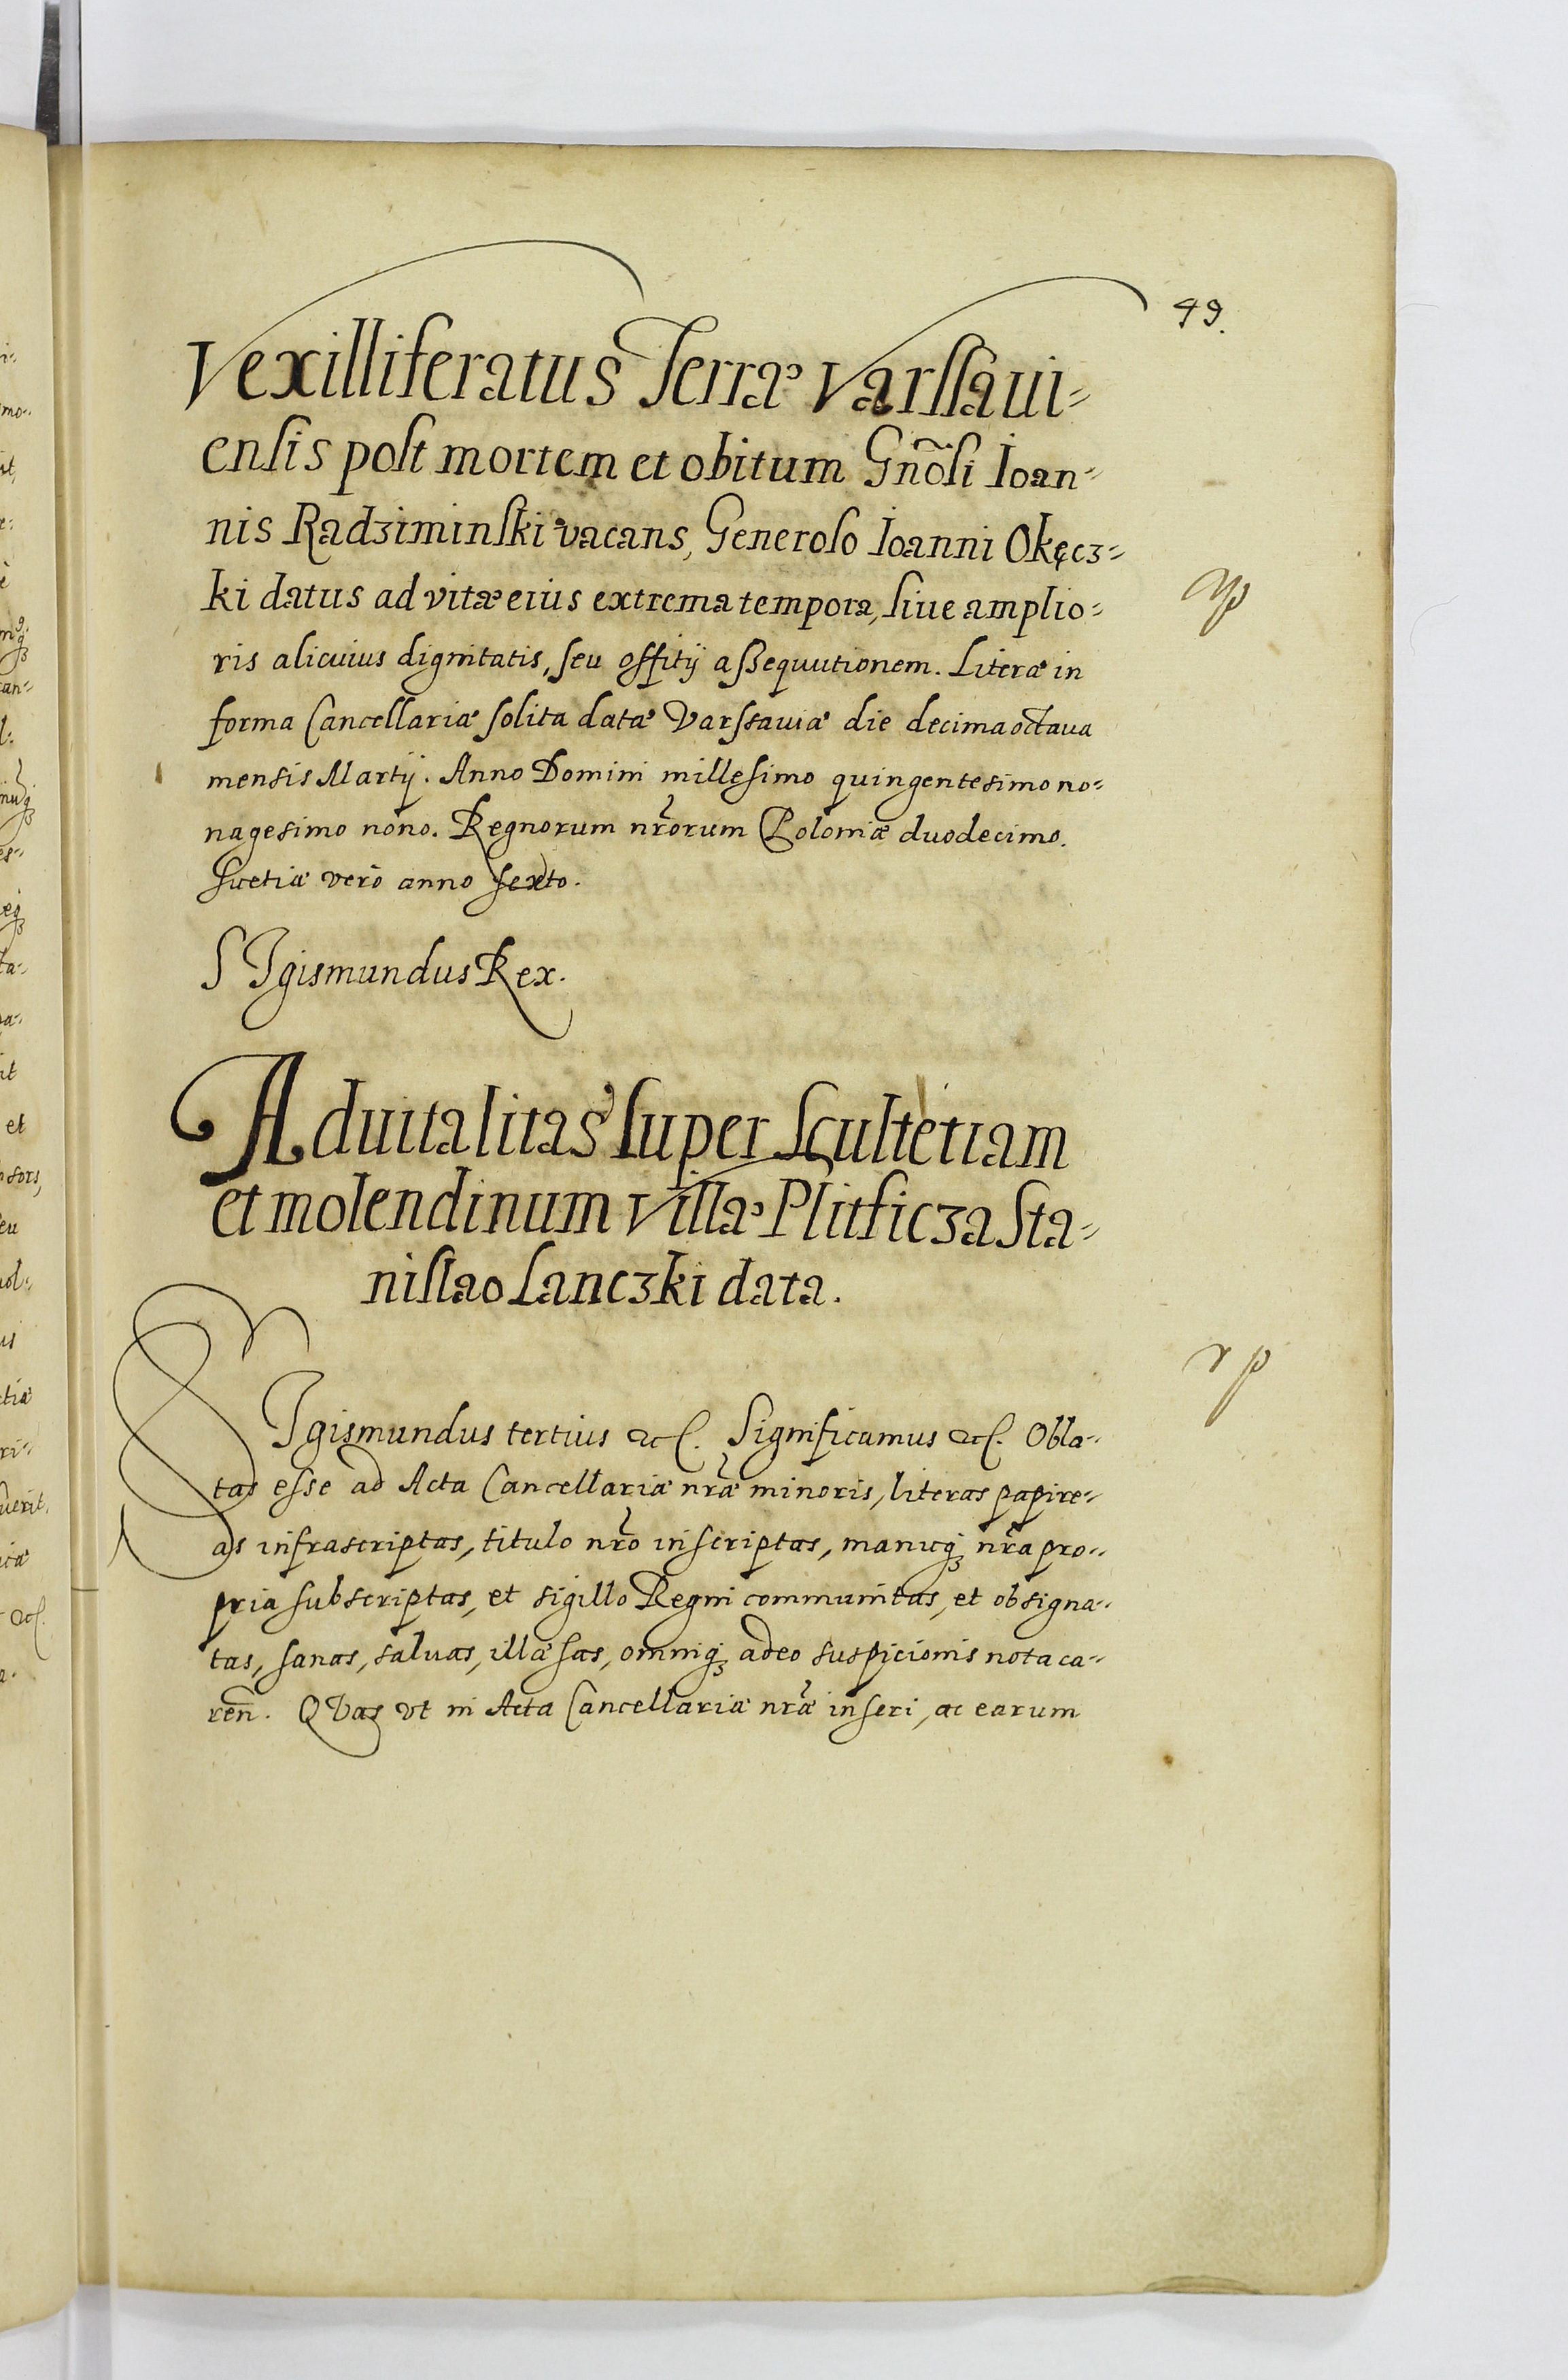 49.
Vexilliferatus Terræ Varssaui-
ensis post mortem et obitum Gnõsi Ioan-
nis Radziminski vacans, Generoso Ioanni Okęcz-
ki datus ad vitæ eius extrema tempora, siue amplio-
ris alicuius dignitatis, seu offitij assequutionem. Literæ in
forma Cancellariæ solita datæ Varsauiæ die decima octaua
mensis Martij. Anno Domini millesimo quingentesimo no-
nagesimo nono. Regnorum nr̃orum Poloniæ duodecimo.
Suetiæ verò anno sexto.
SIgismundus Rex.
Aduitalitas super Scultetiam
et molendinum Villæ Plitficza Sta-
nislao Lanczki data.
SIgismundus tertius etc. Significamus etc. Obla-
tas esse ad Acta Cancellariæ nr̃æ minoris, literas papire-
as infrascriptas, titulo nr̃o inscriptas, manuq; nr̃a pro-
pria subscriptas, et sigillo Regni communitas, et obsigna-
tas, sanas, saluas, illæsas, omniq; adeo suspicionis nota ca-
reñ. QVas vt in Acta Cancellariæ nr̃æ inseri, ac earum